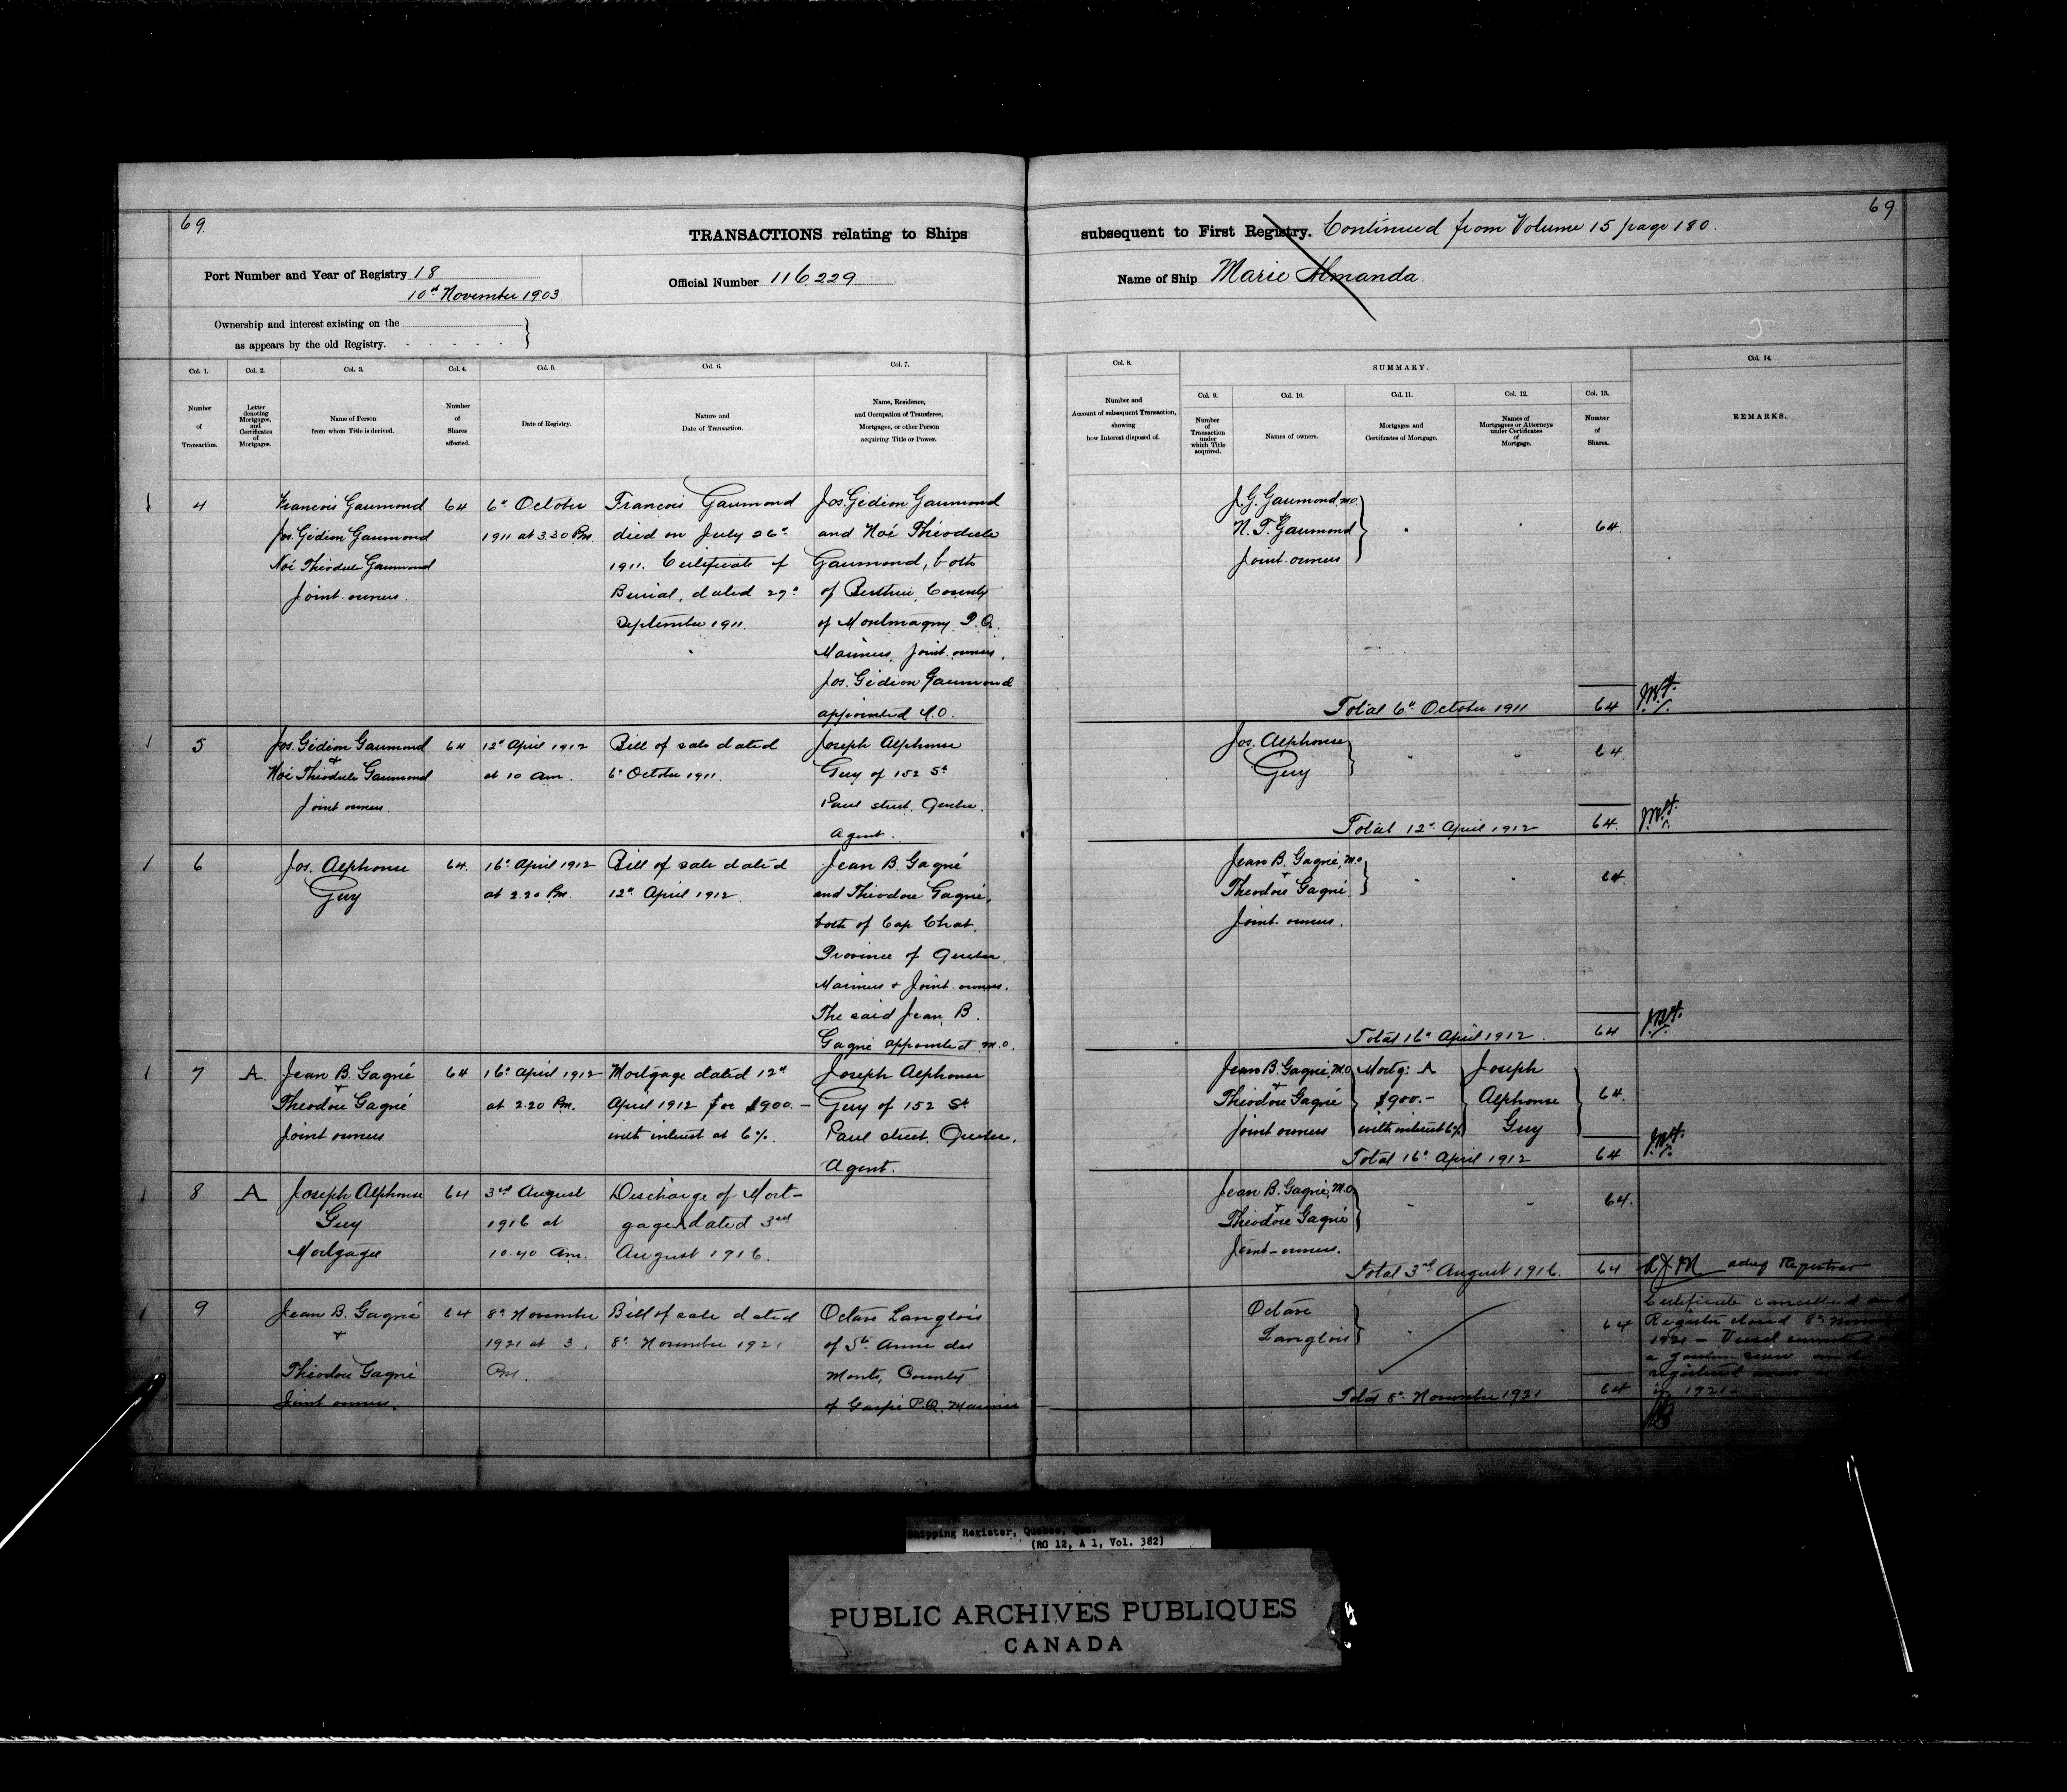 69.
TRANSACTIONS relating to Ships
Port Number and Year of Registry 18
10th November 1903.
Official Number 116,229
Ownership and interest existing on the
as appears by the old Registry.
Col. 1.
Number
of
Transaction.
Col. 2.
Letter
denoting
Mortgages,
and
Certificates
of
Mortgages.
Col. 3.
Name of Person
from whom Title is derived.
Col. 4.
Number
of
Shares
affected.
Col. 5.
Date of Registry.
Col. 6.
Nature and
Date of Transaction.
Col. 7.
Name, Residence,
and Occupation of Transferee,
Mortgagee, or other Person
acquiring Title or Power.
4
Francois Gaumond
Jos. Gédion Gaumond
Noé Théodule Gaumond
Joint owners.
64
6th October
1911 at 3.30 Pm.
Francois Gaumond
died on July 26th
1911. Certificate of
Burial, dated 27th
September 1911.
Jos. Gédion Gaumond
and Noé Théodule
Gaumond, both
of Berthier, County
of Montmagny P.Q.
Mariners, Joint owners.
Jos. Gédion Gaumond
appointed M.O.
5
Jos. Gédion Gaumond
+
Noé Théodule Gaumond
Joint owners.
64
12th April 1912
at 10 am.
Bill of sale dated
6th October 1911.
Joseph Alphonse
Guy of 152 St
Paul street, Quebec.
Agent.
6
Jos. Alphonse
Guy
64.
16th April 1912
at 2.20 Pm.
Bill of sale dated
12th April 1912.
Jean B. Gagné
and Théodore Gagné,
both of Cap Chat,
Province of Quebec.
Mariners + Joint owners.
The said Jean B.
Gagné appointed M.O.
7
A.
Jean B. Gagné
+
Théodore Gagné
Joint owners
64
16th April 1912
at 2.20 Pm.
Mortgage dated 12th
April 1912 for $900.-
with interest at 6%.
Joseph Alphonse
Guy of 152 St
Paul street, Quebec.
Agent.
8
A
Joseph Alphonse
Guy
Mortgagee
64
3rd August
1916 at
10.40 Am.
Discharge of Mort-
gage A dated 3rd
August 1916.
9
Jean B. Gagné
+
Théodore Gagné
Joint owners.
64
8th November
1921 at 3.
Pm.
Bill of sale dated
8th November 1921
Octave Langlois
of Ste Anne des
Monts, County
of Gaspé P.Q. Mariner
69
subsequent to First Registry. Continued from Volume 15 page 180.
Name of Ship Marie Almanda.
Col. 8.
Number and
Account of subsequent Transaction,
showing
how Interest disposed of.
SUMMARY.
Col. 9.
Number
of
Transaction
under
which Title
acquired.
Col. 10.
Names of owners.
Col. 11.
Mortgages and
Certificates of Mortgage.
Col. 12.
Names of
Mortgagees or Attorneys
under Certificates
of
Mortgage.
Col. 13.
Number
of
Shares.
Col. 14.
REMARKS.
J. G. Gaumond, M.O.
+
N. T. Gaumond
Joint owners
64.
Total 6th October 1911
64
Jos. Alphonse
Guy
64
Total 12th April 1912
64.
Jean B. Gagné, M.O.
+
Théodore Gagné
Joint owners.
64.
Total 16th April 1912.
64
Jean B. Gagné, M.O.
+
Théodore Gagné
Joint owners
Mortg: A
$900.-
with interest 6%
Joseph
Alphonse
Guy
64.
Total 16th April 1912
64
Jean B. Gagné, M.O.
+
Théodore Gagné
Joint-owners.
64.
Total 3rd August 1916.
64
Registrar
Octave
Langlois
64
Total 8th November 1921
64
Certificate cancelled and
Register closed 8th November
1921 - Vessel converted
a gasoline screw and
registered anew
in 1921-
Shipping Register, Quebec, Que.
(RG 12, A 1, Vol. 382)
PUBLIC ARCHIVES PUBLIQUES
CANADA